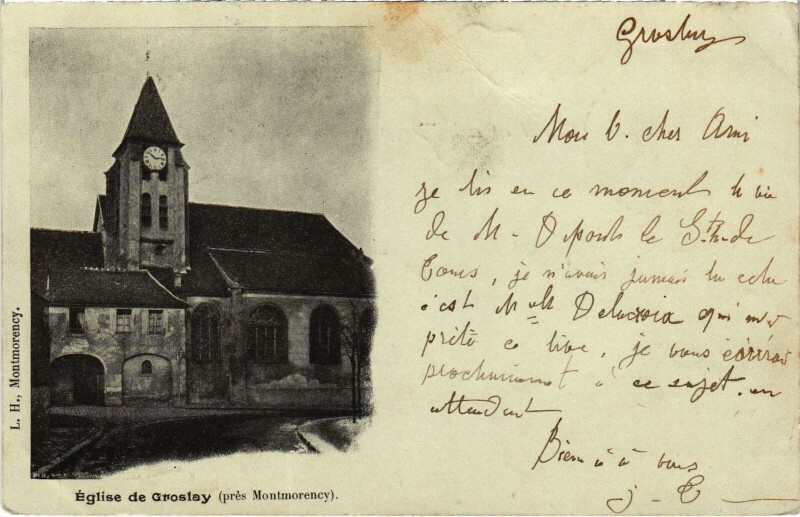 Groslay
Mon b. cher Ami
je lis en ce moment la vie
de M. Dupont le St h. de
Tours, je n'avais jamais lu cela
c'est Melle Delacroix qui m'a
prêté ce livre, je vous écrirai
prochainement à ce sujet. en
attendant
Bien à vous
j. C
L. H., Montmorency.
Église de Groslay (près Montmorency).